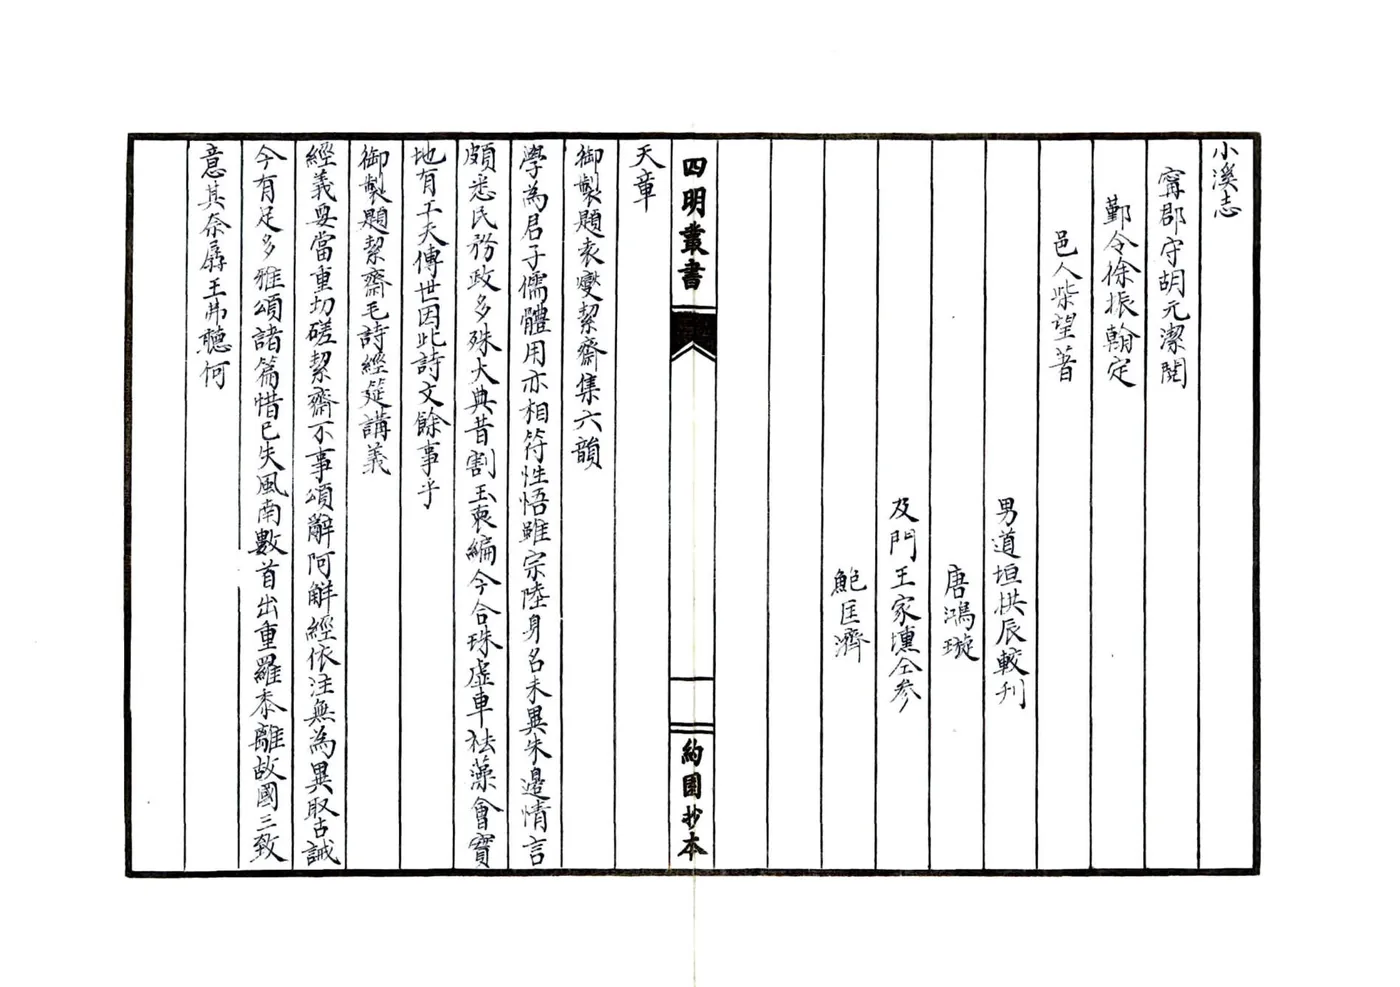 小溪志
甯郡守胡元潔閱
鄞令徐振翰定
邑人柴望著
男道垣拱辰較刊
唐鴻璇
及門王家壎仝参
鮑匡濟
四明叢書
約園抄本
天章
御製題袁燮絜齋集六韻
學為君子儒體用亦相符性悟雖宗陸身名未異朱邊情言
頗悉民務政多殊大典昔割玉裒編今合珠虛車祛藻會寶
地有工夫傳世因此詩文餘事乎
御製題絜齋毛詩經筵講義
經義要當重切磋絜齋不事頌辭阿觧經依注無為異取古誡
今有足多雅頌諸篇惜已失風南數首出重羅黍離故國三致
意其奈孱王弗聽何